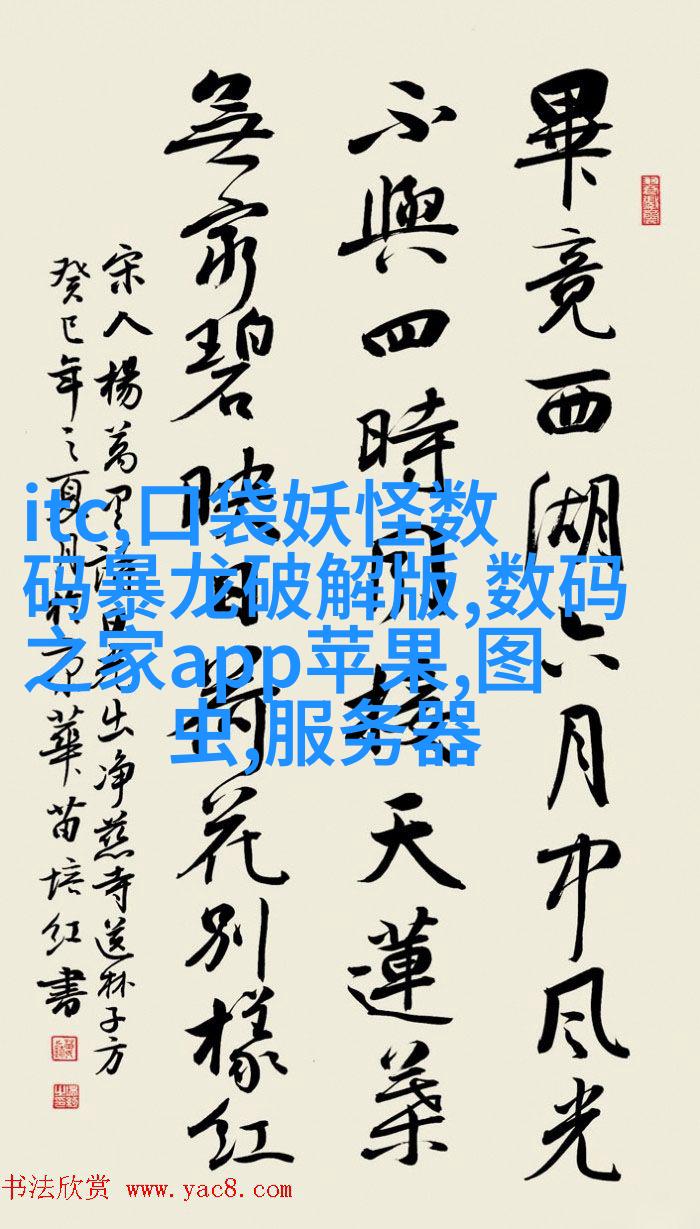 畢竟西湖六月中风光
不與四時同接天蓮葉
無穷碧映日荷花别樣红
宋人楊萬里詩曉出净慈寺送林子方
癸巳年之夏月於京華苗培红書
itc,口袋妖怪数
码暴龙破解版,数码
之家app苹果,图
虫,服务器
书法欣赏 www.yac8.com